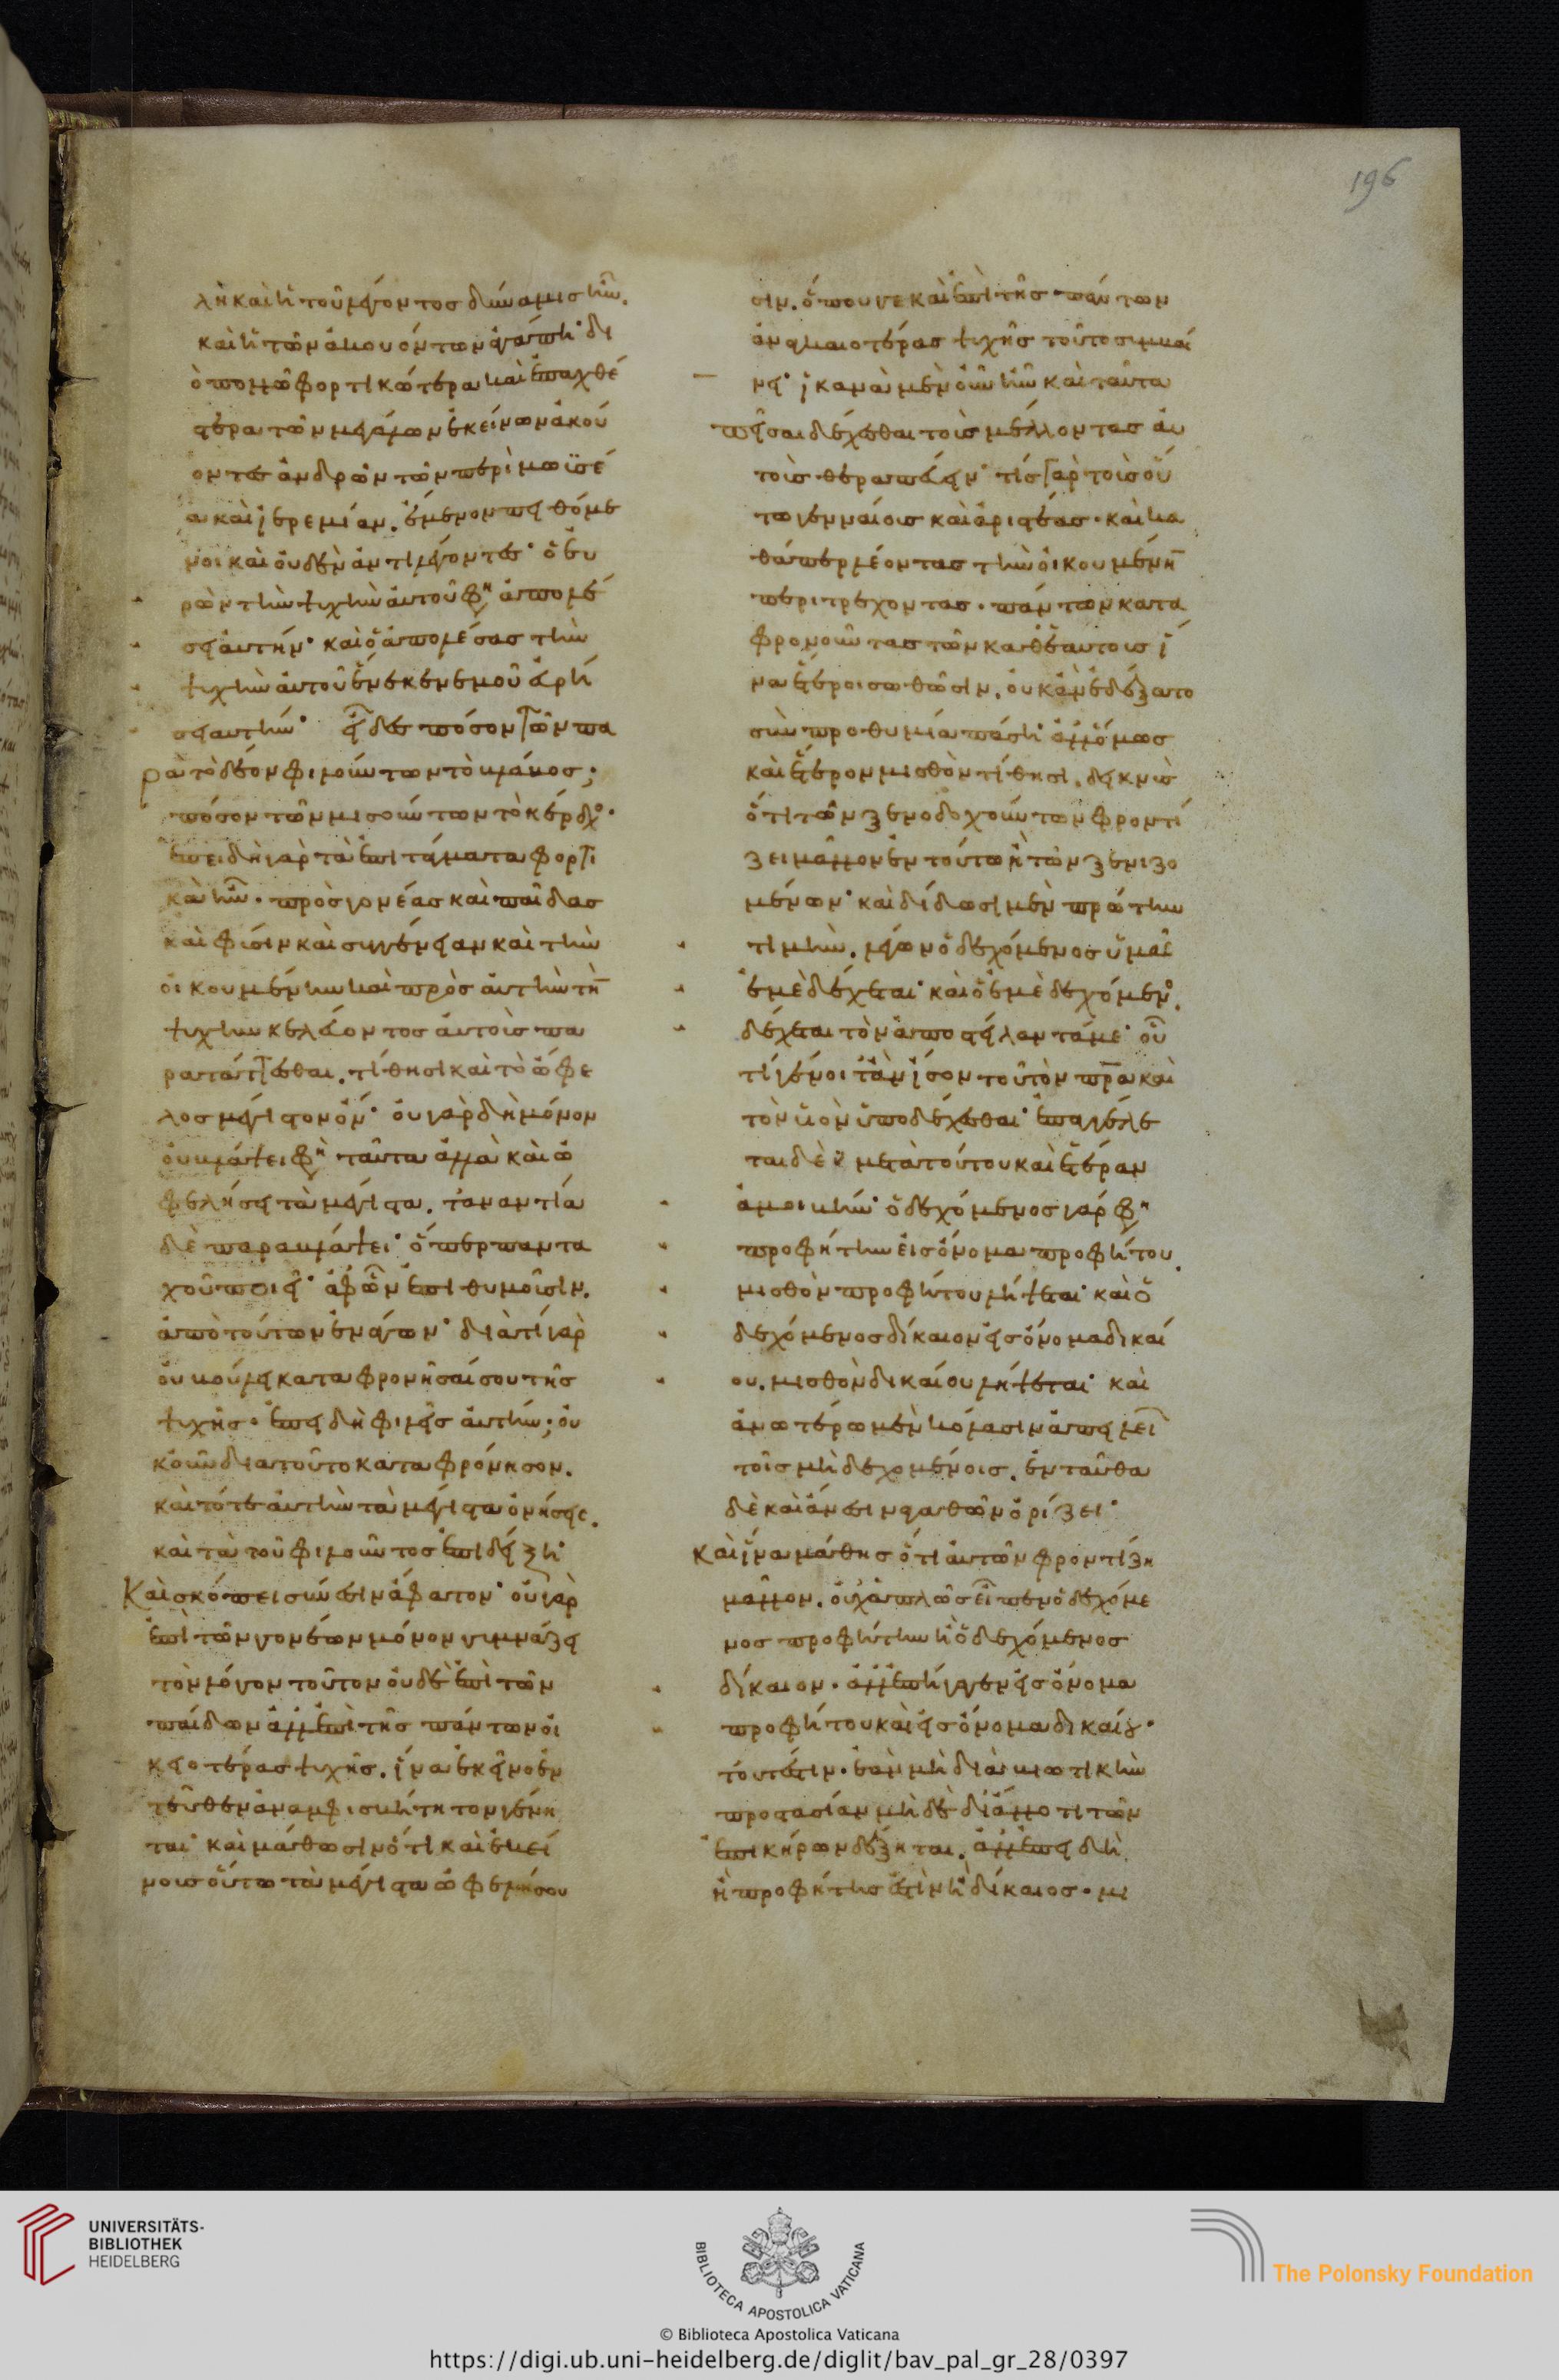 196
λὴ καὶ ἡ τοῦ λέγοντος δύναμις ἦν.
καὶ ἡ τῶν ἀκουόντων ἀγάπη· δι
ὃ πολλῶ φορτικώτερα καὶ ἐπαχθέ
στερα τῶν μεγάλων ἐκείνων ἀκού
οντες ἀνδρῶν τῶν περὶ μωϋσέ
α καὶ ἱερεμίαν. ἔμενον πειθόμε
νοι καὶ οὐδὲν ἀντιλέγοντες· ὁ εὑ
ρὼν τὴν ψυχὴν αὐτοῦ φη ἀπολέ
σει αὐτήν· καὶ ὁ ἀπολέσας τὴν
ψυχὴν αὐτοῦ ἕνεκεν ἐμοῦ εὑρή
σει αὐτήν· εἶδες πόσον τῶν πα
ρὰ τὸ δέον φιλούντων τὸ βλάβος;
πόσον τῶν μισούντων τὸ κέρδος.
ἐπειδὴ γὰρ τὰ ἐπιτάγματα φορτι
κὰ ἦν. πρὸς γονέας καὶ παῖδας
καὶ φύσιν καὶ συγγένειαν καὶ τὴν
οἰκουμένην καὶ πρὸς αὐτὴν τὴν
ψυχὴν κελεύοντος αὐτοῖς πα
ρατάττεσθαι. τίθησι καὶ τὸ ὄφε
λος μέγιστον ὄν· οὐ γὰρ δὴ μόνον
οὐ βλάψει φη ταῦτα ἀλλὰ καὶ ὠ
φελήσει τὰ μέγιστα. τἀναντία
δὲ παραβλάψει· ὅπερ παντα
χοῦ ποιεῖ· ἀφ' ὧν ἐπιθυμοῦσιν.
ἀπὸ τούτων ἐνάγων· διατί γὰρ
οὐ βούλει καταφρονῆσαί σου τῆς
ψυχῆς. ἐπειδὴ φιλεῖς αὐτήν; οὐ
κοῦν διατοῦτο καταφρόνησον.
καὶ τότε αὐτὴν τὰ μέγιστα ὀνήσεις.
καὶ τὰ τοῦ φιλοῦντος ἐπιδείξη·
Καὶ σκόπει σύνεσιν ἄφατον· οὐ γὰρ
ἐπὶ τῶν γονέων μόνον γυμνάζει
τὸν λόγον τοῦτον οὐδὲ ἐπὶ τῶν
παίδων ἀλλ' ἐπὶ τῆς πάντων οἰ
κειοτέρας ψυχῆς. ἵνα ἐκεῖνο ἐν
τεῦθεν ἀναμφισβήτητον γένη
ται· καὶ μάθωσιν ὅτι καὶ ἐκεί
νους οὕτω τὰ μέγιστα ὠφελήσου
σιν. ὅπου γε καὶ ἐπὶ τῆς πάντων
ἀναγκαιοτέρας ψυχῆς τοῦτο συμβαί
νει· ἱκανὰ μὲν οὖν ἦν καὶ ταῦτα
πεῖσαι δέχεσθαι τοὺς μέλλοντας αὐ
τοὺς θεραπεύειν· τίς γὰρ τοὺς οὕ
τω γενναίους καὶ ἀριστέας. καὶ κα
θάπερ λέοντας τὴν οἰκουμένην
περιτρέχοντας. πάντων κατα
φρονοῦντας τῶν καθ' ἑαυτοὺς ἵ
να ἕτεροι σωθῶσιν. οὐκ ἂν ἐδέξατο
σὺν προθυμία πάση· ἀλλ' ὅμως
καὶ ἕτερον μισθὸν τίθησι. δεικνὺς
ὅτι τῶν ξενοδοχούντων φροντί
ζει μᾶλλον ἐν τούτω ἢ τῶν ξενιζο
μένων· καὶ δίδωσι μὲν πρώτην
τιμήν. λέγων ὁ δεχόμενος ὑμᾶς
ἐμὲ δέχεται· καὶ ὁ ἐμὲ δεχόμενος.
δέχεται τὸν ἀποστείλαντά με· οὗ
τί γένοιτ' ἂν ἴσον τοῦ τὸν πρα καὶ
τὸν υἱὸν ὑποδέχεσθαι· ἐπαγγέλλε
ται δὲ μετὰ τούτου καὶ ἑτέραν
ἀμοιβήν· ὁ δεχόμενος γάρ φη
προφήτην εἰς ὄνομα προφήτου.
μισθὸν προφήτου λήψεται· καὶ ὁ
δεχόμενος δίκαιον εἰς ὄνομα δικαί
ου. μισθὸν δικαίου λήψεται· καὶ
ἀνωτέρω μὲν κόλασιν ἀπειλεῖ
τοῖς μὴ δεχομένοις. ἐνταῦθα
δὲ καὶ ἄνεσιν ἀγαθῶν ὁρίζει·
Καὶ ἵνα μάθης ὅτι αὐτῶν φροντίζει
μᾶλλον. οὐχ ἁπλῶς εἶπεν ὁ δεχόμε
νος προφήτην ἢ ὁ δεχόμενος
δίκαιον. ἀλλ' ἐπήγαγεν εἰς ὄνομα
προφήτου καὶ εἰς ὄνομα δικαίου.
τουτέστιν. ἐὰν μὴ διὰ βιωτικὴν
προστασίαν μὴ δὲ δι' ἄλλο τι τῶν
ἐπικήρων δέξηται. ἀλλ' ἐπειδὴ
ἢ προφήτης ἐστὶν ἢ δίκαιος. μι
UNIVERSITÄTS-
BIBLIOTHEK
HEIDELBERG
BIBLIOTECA APOSTOLICA VATICANA
The Polonsky Foundation
© Biblioteca Apostolica Vaticana
https://digi.ub.uni-heidelberg.de/diglit/bav_pal_gr_28/0397